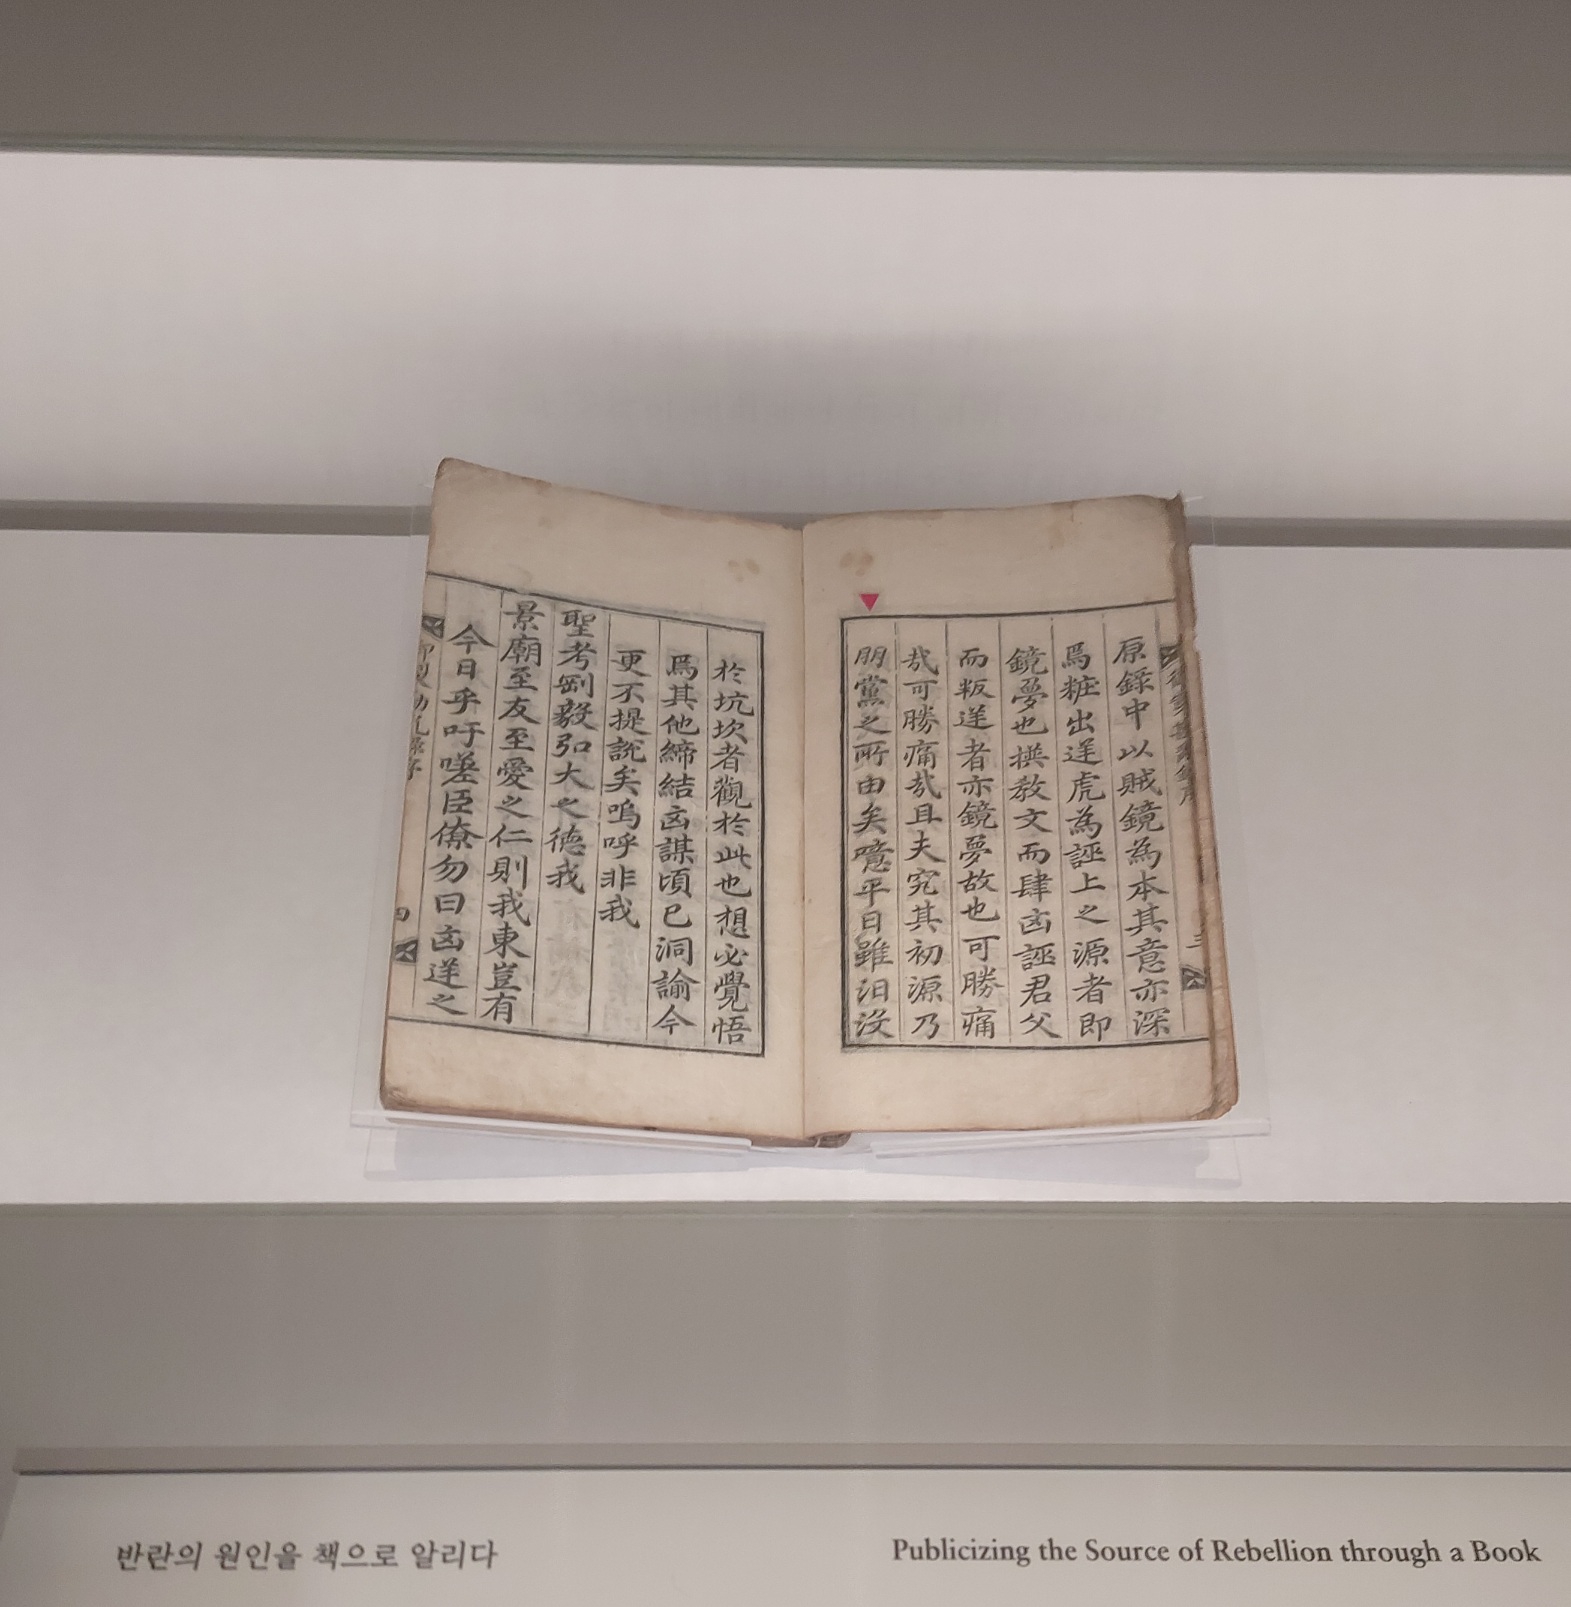 原錄中以賊鏡為本其意亦深
焉粧出逆虎為誣上之源者即
鏡夢也撰敎文而肆凶誣君父
而叛逆者亦鏡夢故也可勝痛
㢤可勝痛㢤且夫究其初源乃
朋黨之所由矣噫平日雖汩沒
於坑坎者觀於此也想必覺悟
焉其他締結凶謀頃已洞諭今
更不提說矣嗚呼非我
聖考剛毅弘大之德我
景廟至友至愛之仁則我東豈有
今日乎吁嗟臣僚勿曰凶逆之
四
반란의 원인을 책으로 알리다
Publicizing the Source of Rebellion through a Book